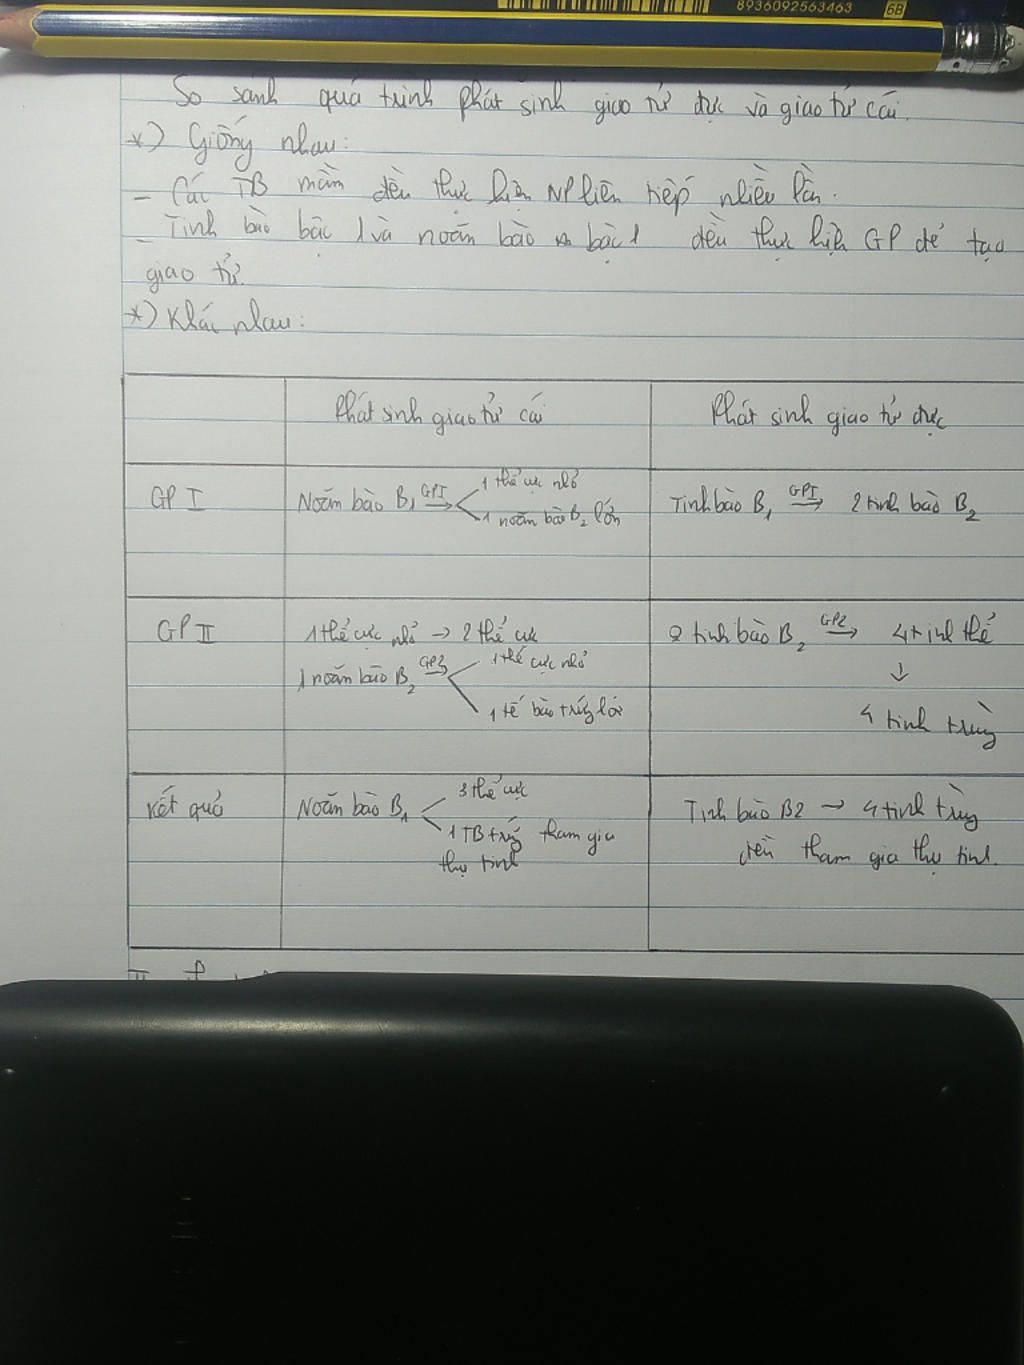 8936092563463 6B
So sánh quá trình phát sinh giao tử đực và giao tử cái.
*) Giống nhau:
- Các TB mầm đều thực hiện NP liên tiếp nhiều lần.
- Tinh bào bậc 1 và noãn bào bậc 1 đều thực hiện GP để tạo
giao tử.
*) Khác nhau:
Phát sinh giao tử cái
Phát sinh giao tử đực
GP I
Noãn bào B₁ GPI →
1 thể cực nhỏ
1 noãn bào B₂ lớn
Tinh bào B₁ GPI → 2 tinh bào B₂
GP II
1 thể cực nhỏ → 2 thể cực
1 noãn bào B₂ GP2 →
1 thể cực nhỏ
1 tế bào trứng lớn
2 tinh bào B₂ GP2 → 4 tinh thể
↓
4 tinh trùng
Kết quả
Noãn bào B₁
3 thể cực
1 TB trứng tham gia
thụ tinh
Tinh bào B2 → 4 tinh trùng
đều tham gia thụ tinh.